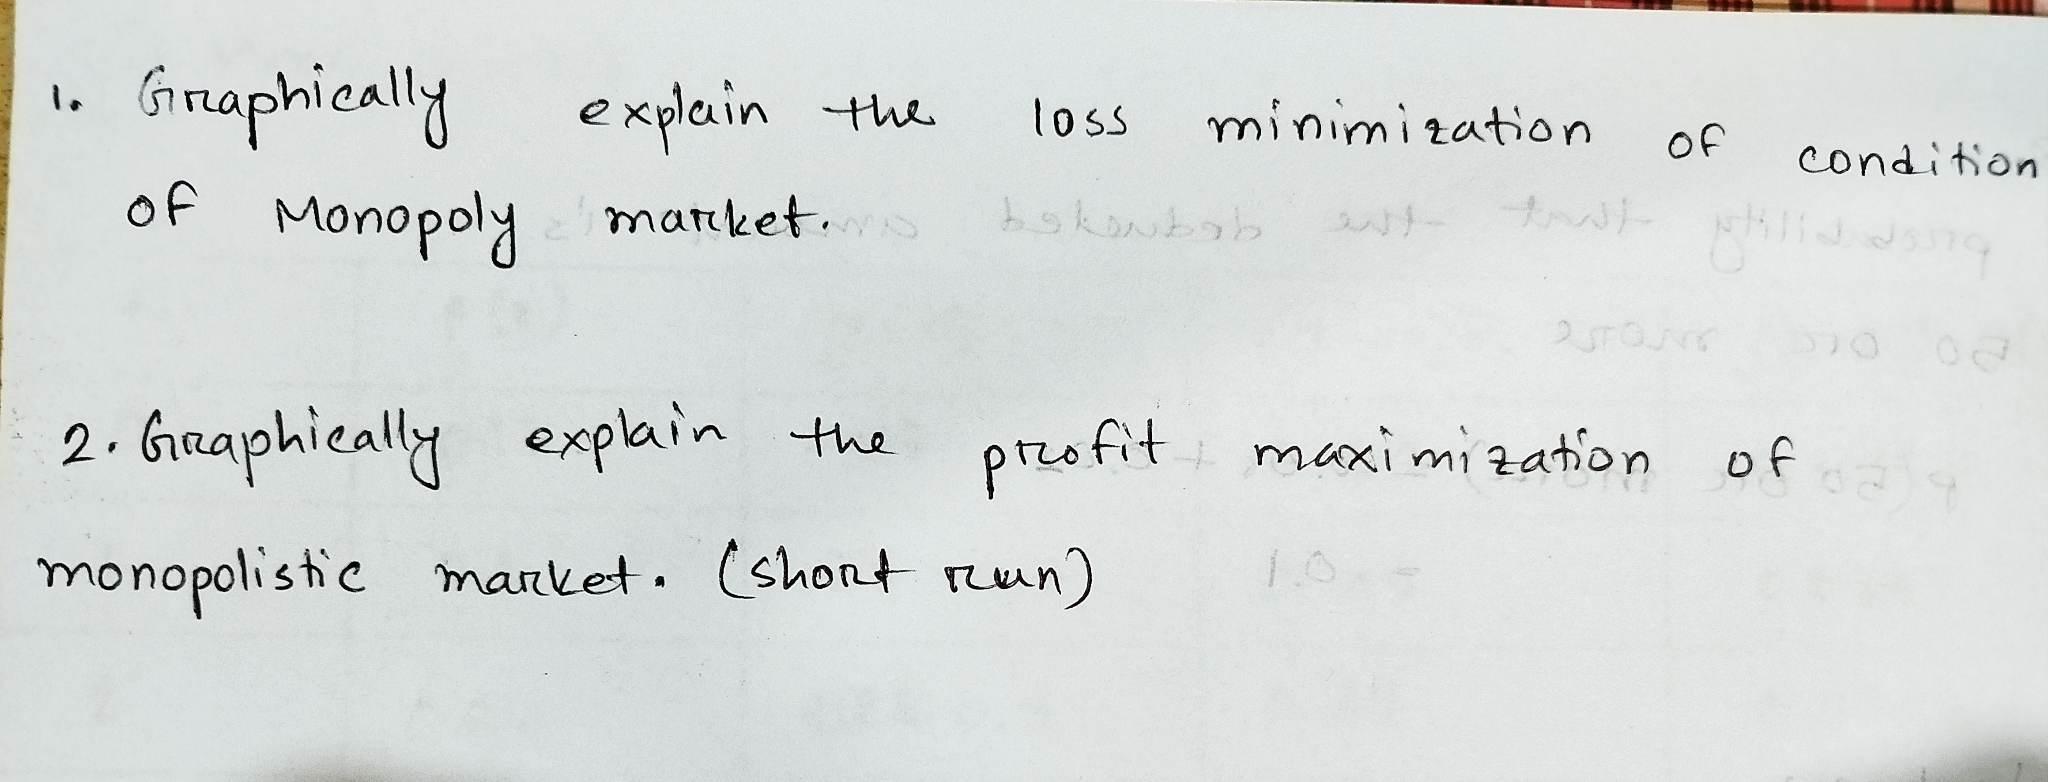 1. Graphically explain the loss minimization of condition
of Monopoly market.
2. Graphically explain the profit maximization of
monopolistic market. (short run)